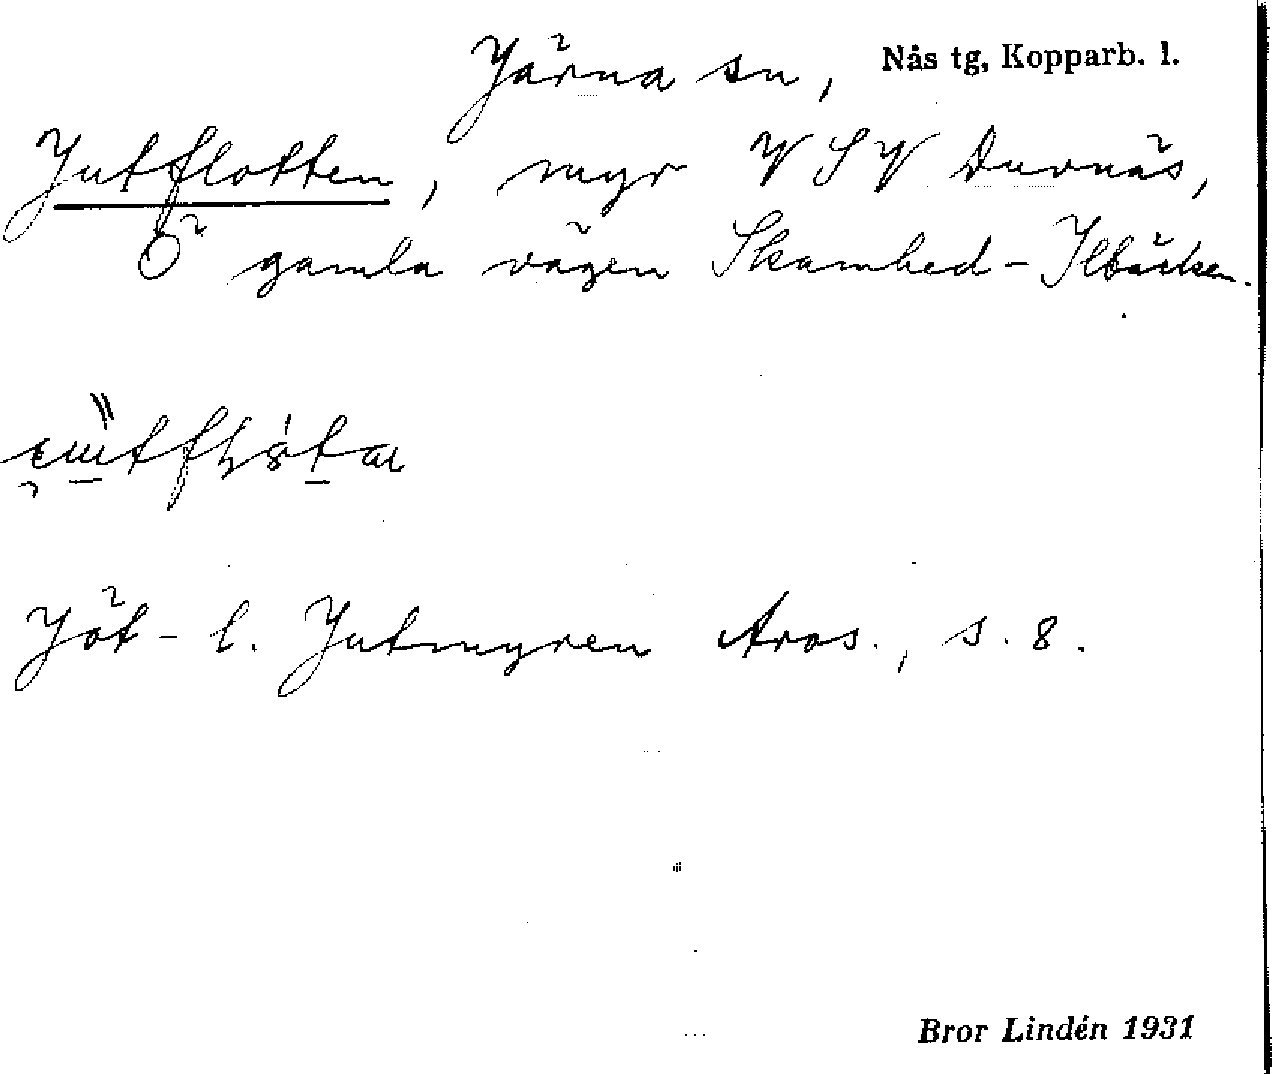 Järna sn, Nås tg, Kopparb. l.
Jutflotten, myr VSV Durnäs,
Ö gamla vägen Skamhed-Ilbäcken.
Jöt- l. Jutmyren Aros., s. 8.
Bror Lindén 1931